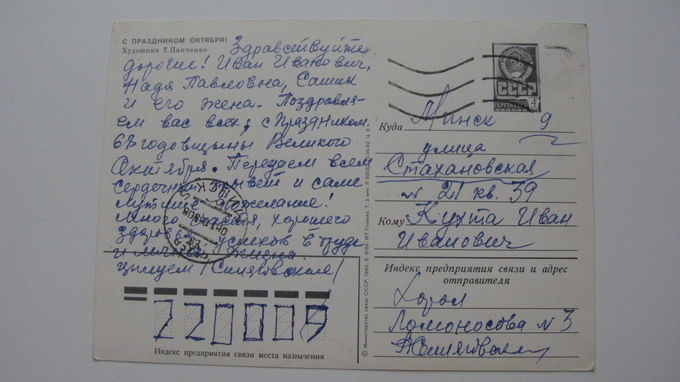 С ПРАЗДНИКОМ ОКТЯБРЯ!
Художник Т. Панченко
Здравствуйте
дорогие! Иван Иванович,
Надя Павловна, Сашик
и его жена. Поздравля-
ем вас всех, с Праздником
67 годовщины Великого
Октября. Передаем всем
сердечный привет и самые
лучшие пожелания!
Много счастья, хорошего
здоровья, успехов в труде
и личной жизни.
целуем
СССР
ПОЧТА
4
Куда Минск 9
улица
Стахановская
№ 21 кв. 39
Кому Кухта Иван
Иванович
Индекс предприятия связи и адрес
отправителя
Ломоносова № 3
220009
Индекс предприятия связи места назначения
© Министерство связи СССР. 1982.